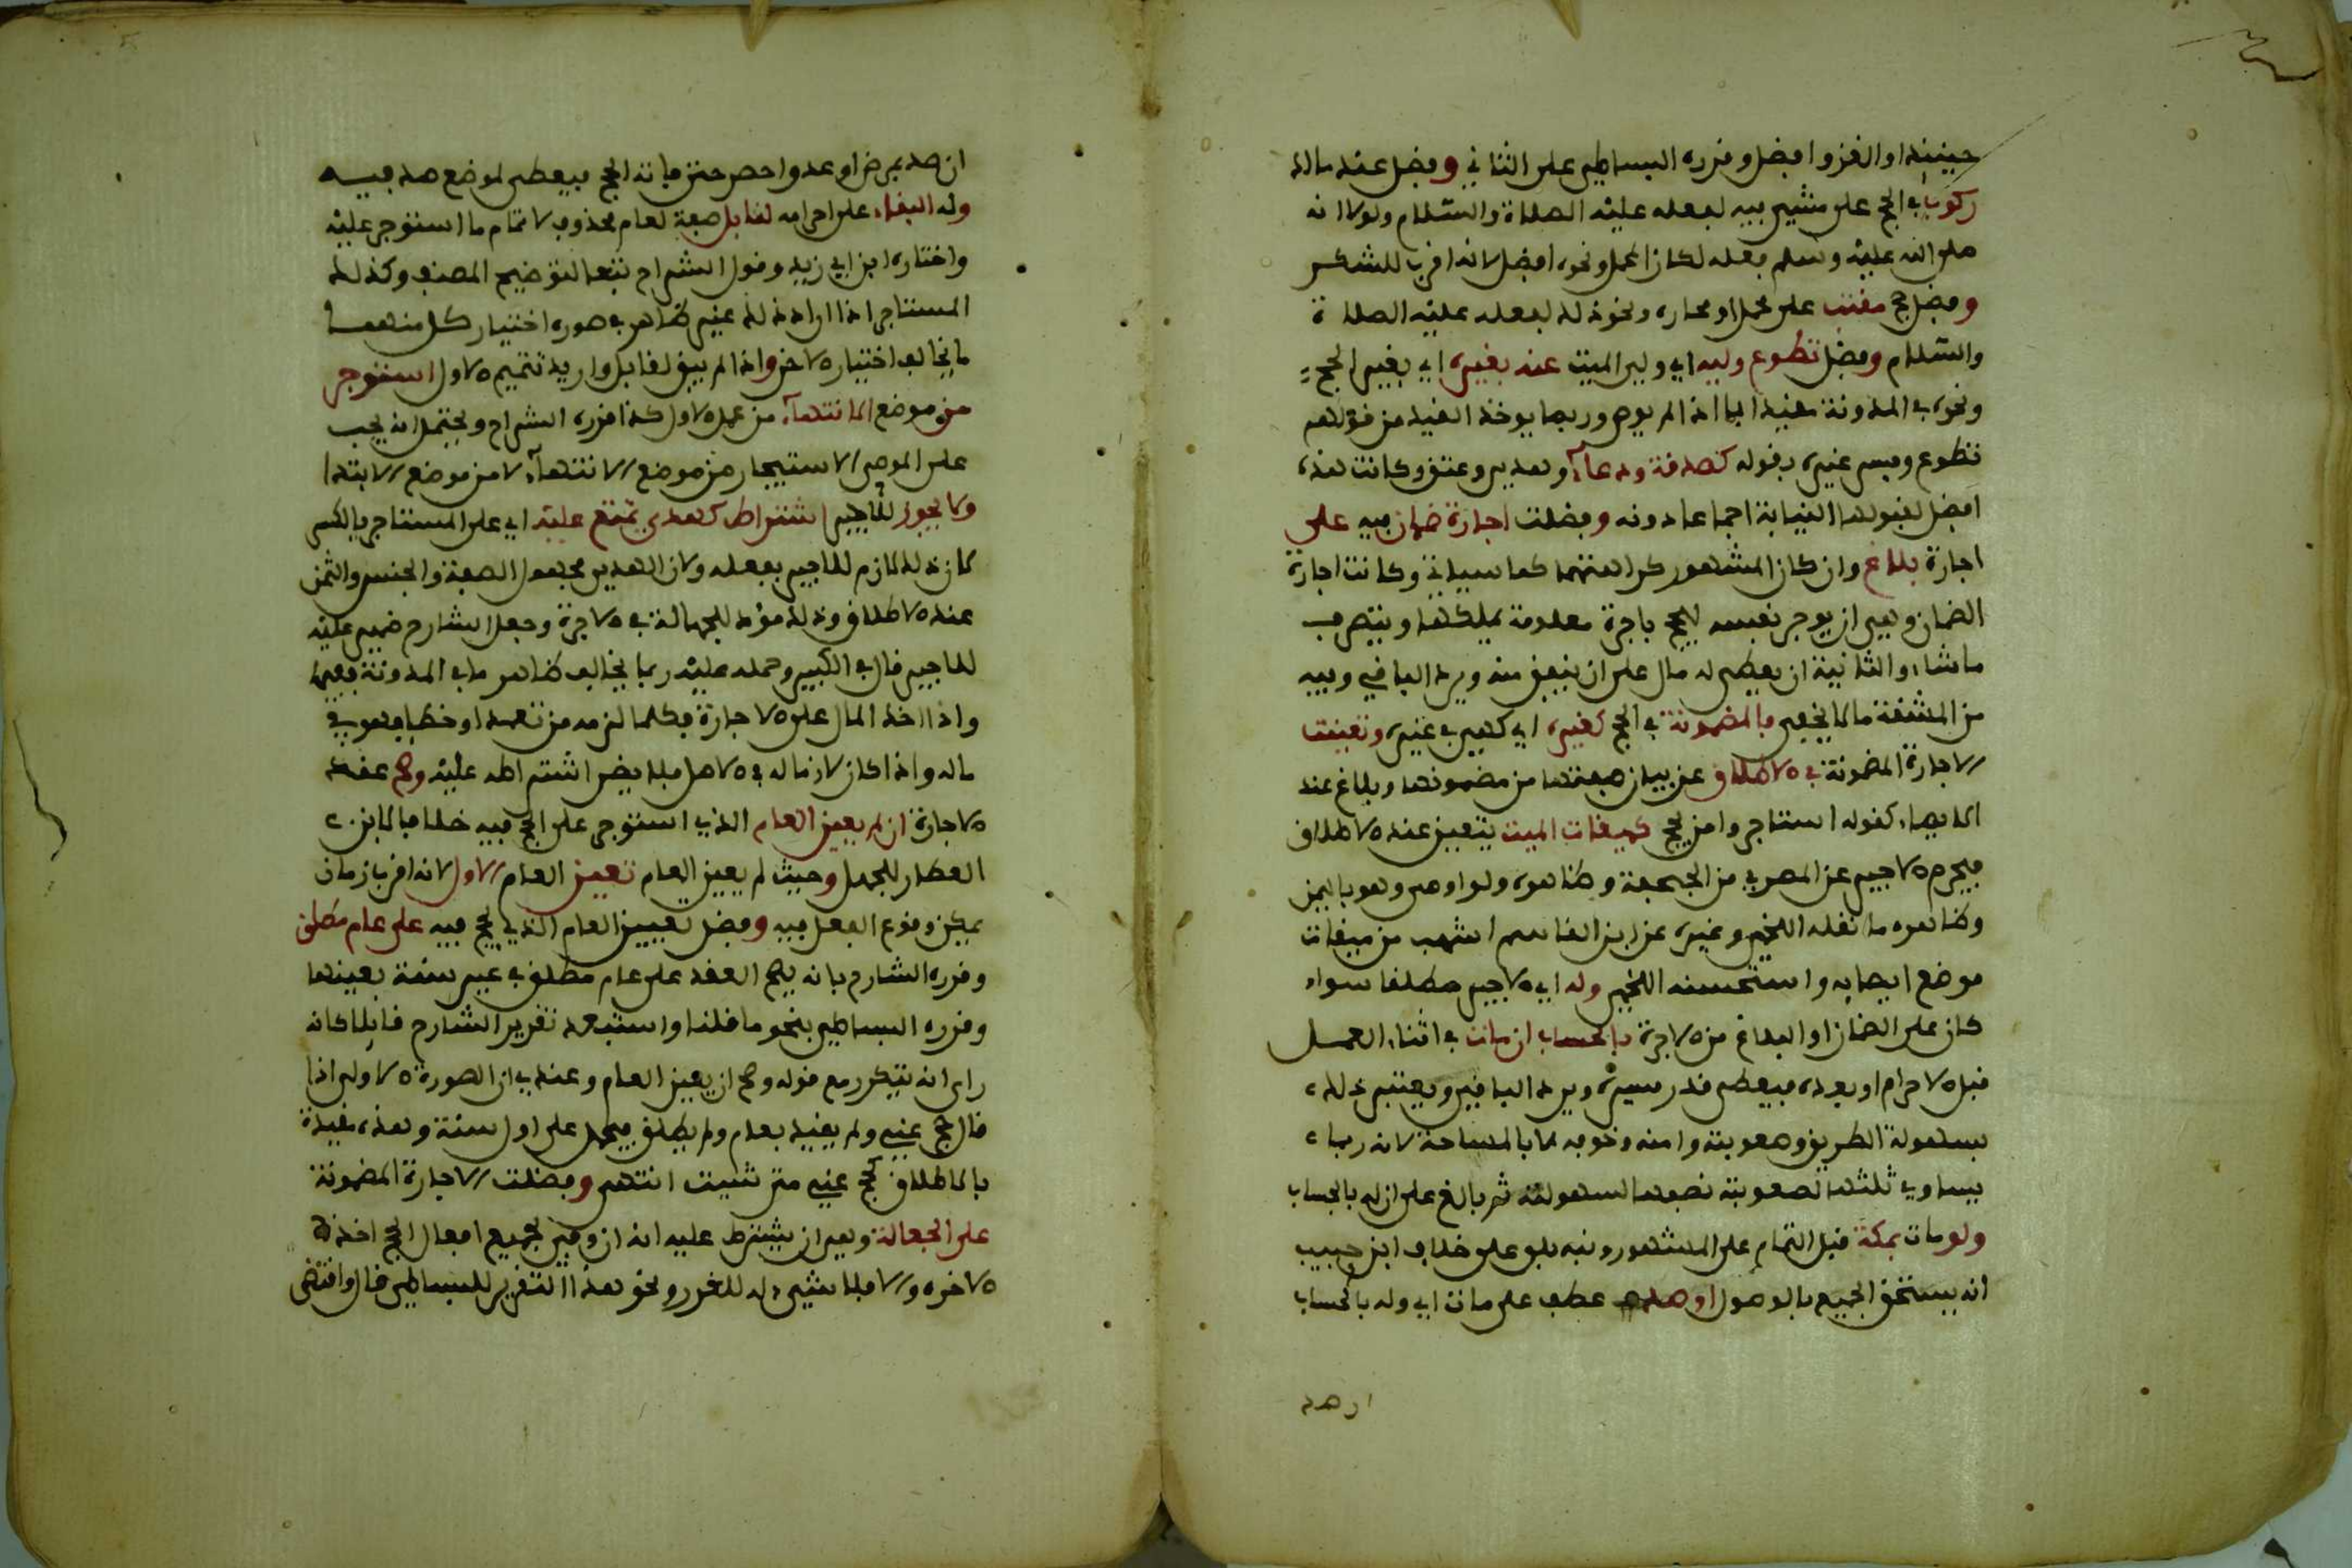 حينيذ او الغزو افضل وقرره البساطي على الثاني وفضل عند مالك
ركوب في الحج على مشي فيه لفعله عليه الصلاة والسلام ولولا انه
صلى الله عليه وسلم فعله لكان المحمل ونحوه افضل لانه اقرب للشكر
وفضل حج مقتب على محمل او محارة ونحو ذلك لفعله عليه الصلاة
والسلام وفضل تطوع وليه اي ولي الميت عنه بغيره اي بغير الحج
ونحوه في المدونة مقيدا بما اذا لم يوص وربما يوخذ القيد من قولهم
تطوع وفسر غيره بقوله كصدقة ودعاء وهدي وعتق وكانت هذه
افضل لقبولها النيابة اجماعا دونه وفضلت اجارة ضمان فيه على
اجارة بلاغ وان كان المشهور كراهتهما كما سياتي وكانت اجارة
الضمان وهي ان يوجر نفسه ليحج باجرة معلومة يملكها ويتصرف
ما شاء والثانية ان يعطى له مال على ان ينفق منه ويرد الباقي وفيه
من المشقة ما لا يخفى فالمضمونة في الحج كغيره اي كهي في غيره وتعينت
الاجارة المضمونة في الاطلاق عن بيان صفتها من مضمونها وبلاغ عند
الايصاء كقوله استاجروا من يحج كميقات الميت يتعين عند الاطلاق
فيحرم الاجير عن المصري من الجحفة وظاهره ولو اوصى وهو باليمن
وظاهره ما نقله اللخمي وغيره عن ابن القاسم اشهب من ميقات
موضع ايصايه واستحسنه اللخمي وله اي الاجير مطلقا سواء
كان على الضمان او البلاغ من الاجرة بالحساب ان مات في اثناء العمل
قبل الاحرام او بعده فيعطى قدر مسيره ويرد الباقي ويعتبر ذلك
بسهولة الطريق وصعوبته وامنه وخوفه لا بالمساحة لانه ربما
يساوي ثلثها لصعوبته نصفها لسهولته ثم بالغ على ان له بالحساب
ولو مات بمكة قبل التمام على المشهور ونبه بلو على خلاف ابن حبيب
انه يستحق الجميع بالوصول او صد عطف على مات اي وله بالحساب
ان صد
ان صد بمرض او عدو احصر حتى فاته الحج فيعطى لموضع صد فيه
وله البقاء على احرامه لقابل صفة لعام محذوف لاتمام ما استوجر عليه
واختاره ابن ابي زيد وقول الشراح تبعا لتوضيح المصنف وكذلك
المستاجر اذا اراد ذلك غير ظاهر في صورة اختيار كل منهما
ما يخالف اختيار الاخر واذا لم يبق لقابل واريد تتميم الاول استوجر
من موضع الانتهاء من عمل الاول كذا قرره الشراح ويحتمل انه يجب
على الموصي الاستيجار من موضع الانتهاء لا من موضع الابتدا
ولا يجوز للاجير اشتراط كهدي تمتع عليه اي على المستاجر بالكسر
لان ذلك لازم للاجير بفعله ولان الهدي مجهول الصفة والجنس والثمن
عند الاطلاق وذلك مود للجهالة في الاجرة وجعل الشارح ضمير عليه
للاجير قال في الكبير وحمله عليه ربما يخالف ظاهر ما في المدونة ففيها
واذا اخذ المال على الاجارة فكلما لزمه من تعمد او خطا فهو في
ماله واذا كان لازما له في الاصل فلا يضر اشتراطه عليه وصح عقد
الاجارة ان لم يعين العام الذي استوجر على الحج فيه خلافا لابن
العطار للجهل وحيث لم يعين العام تعين العام الاول لانه اقرب ازمان
يمكن وقوع الفعل فيه وفضل تعيين العام الذي يحج فيه على عام مطلق
وقرره الشارح بانه يصح العقد على عام مطلق في غير سنة بعينها
وقرره البساطي بنحو ما قلنا واستبعد تقرير الشارح قايلا كانه
راى انه يتكرر مع قوله وصح ان يعين العام وعندي ان الصورة الاولى اذا
قال حج عني ولم يقيد بعام ولم يطلق فيحمل على اول سنة وهذه مقيدة
بالاطلاق كحج عني متى شيت انتهى وفضلت الاجارة المضمونة
على الجعالة وهي ان يشترط عليه انه ان وفى بجميع افعال الحج اخذ
الاجرة والا فلا شيء له للغرر ونحو هذا التقرير للبساطي قال واقتضى